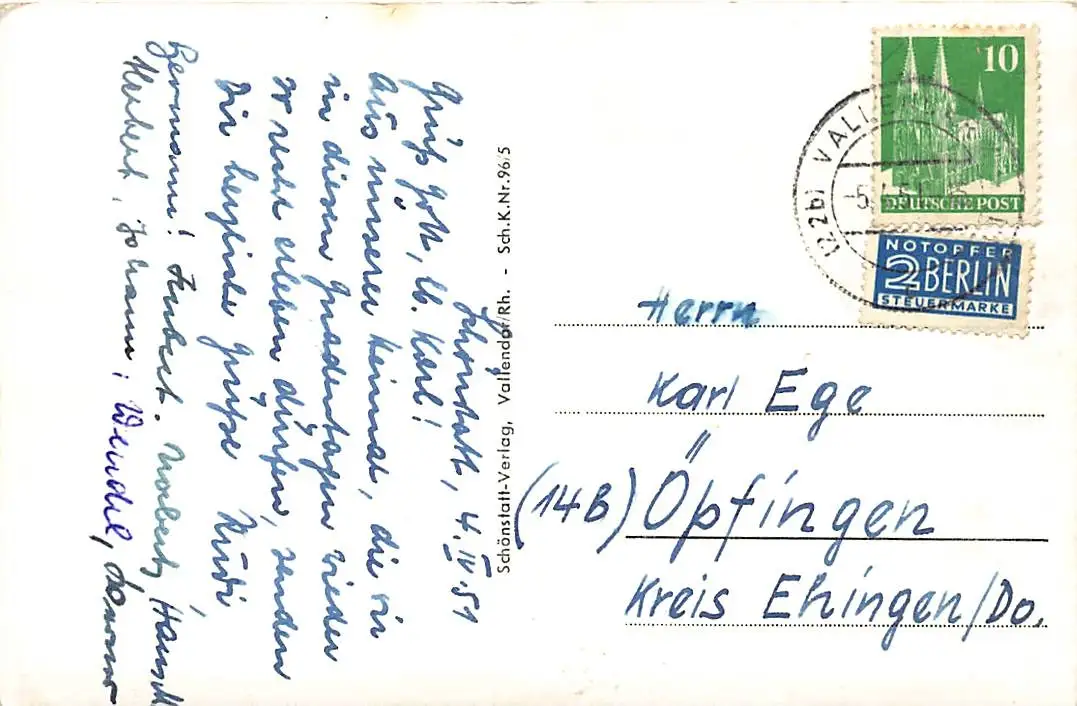 Schönstatt, 4. IV. 51
Grüß Gott, lb. Karl!
Aus unserer Heimat, die wir
in diesen Gnadentagen wieder
so recht erleben dürfen, senden
Dir herzliche Grüße Rudi
Hermann! Norbert,
Herbert, Johann, Wendel,
Schönstatt-Verlag, Vallendar/Rh. - Sch.K.Nr. 96/5
10
DEUTSCHE POST
(22b) VALLE
NOTOPFER
2 BERLIN
STEUERMARKE
Herrn
Karl Ege
(14B) Öpfingen
Kreis Ehingen/Do.